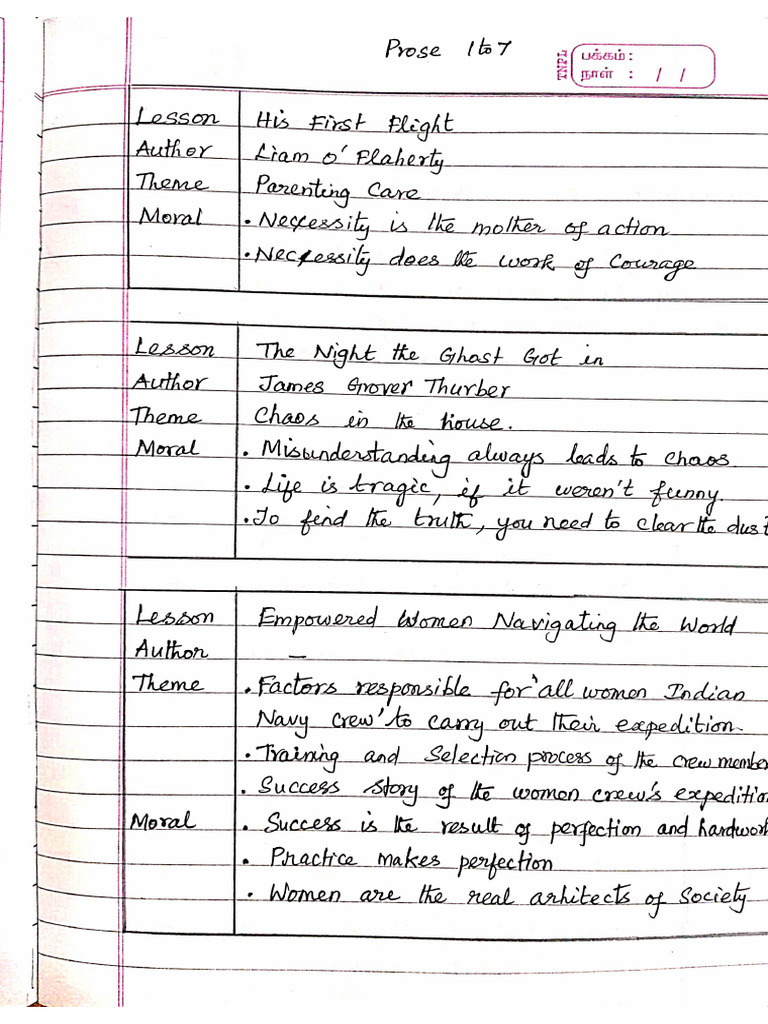 Prose 1 to 7
TNPL
பக்கம் :
நாள் : / /
Lesson His First Flight
Author Liam O'Flaherty
Theme Parenting Care
Moral • Necessity is the mother of action
• Necessity does the work of Courage
Lesson The Night the Ghost Got in
Author James Grover Thurber
Theme Chaos in the house.
Moral • Misunderstanding always leads to chaos.
• Life is tragic, if it weren't funny.
• To find the truth, you need to clear the dust
Lesson Empowered Women Navigating the World
Author –
Theme • Factors responsible for 'all women Indian
Navy crew' to carry out their expedition.
• Training and Selection process of the crew member
• Success story of the women crew's expedition
Moral • Success is the result of perfection and hardwork
• Practice makes perfection
• Women are the real arhitects of Society